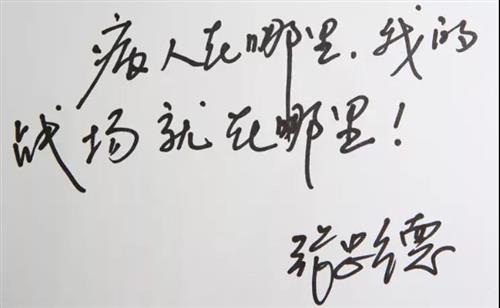 病人在哪里,我的
战场就在哪里!
张忠德